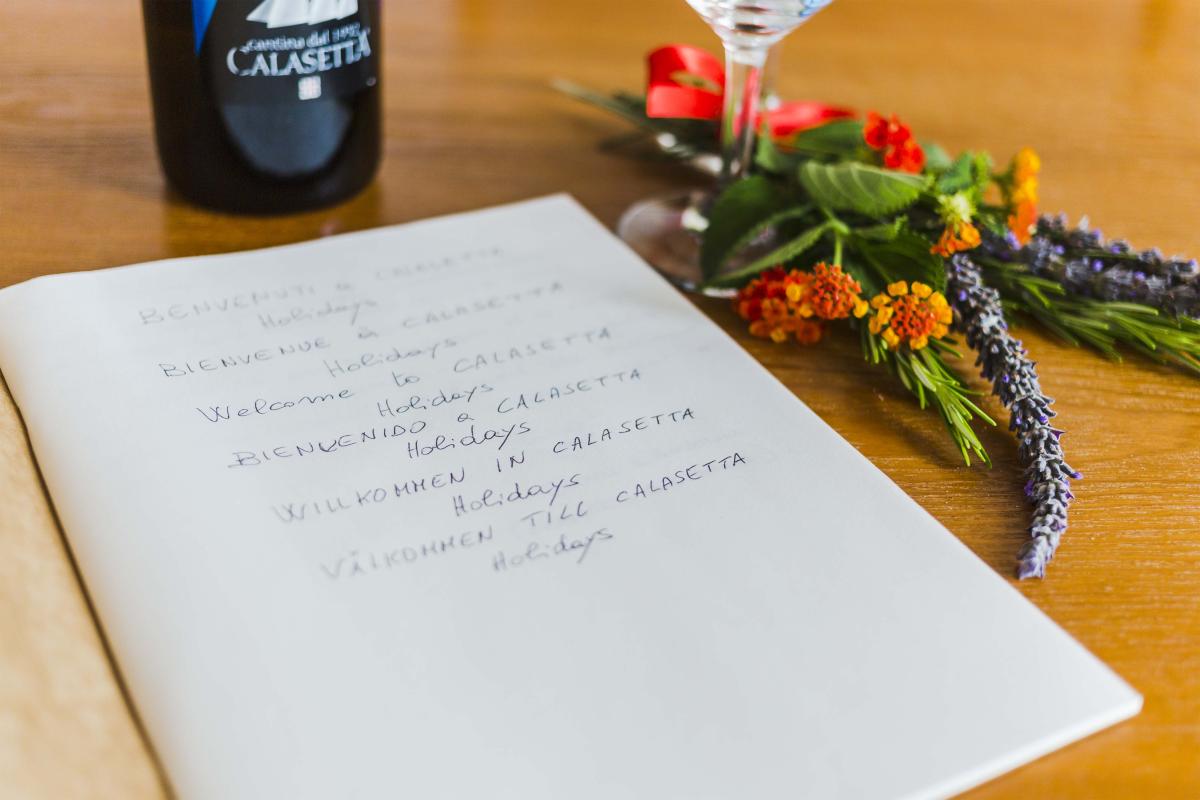 cantina dal 1932
CALASETTA
BENVENUTI a CALASETTA
Holidays
BIENVENUE à CALASETTA
Holidays
Welcome to CALASETTA
Holidays
BIENVENIDO a CALASETTA
Holidays
WILLKOMMEN IN CALASETTA
Holidays
VÄLKOMMEN TILL CALASETTA
Holidays